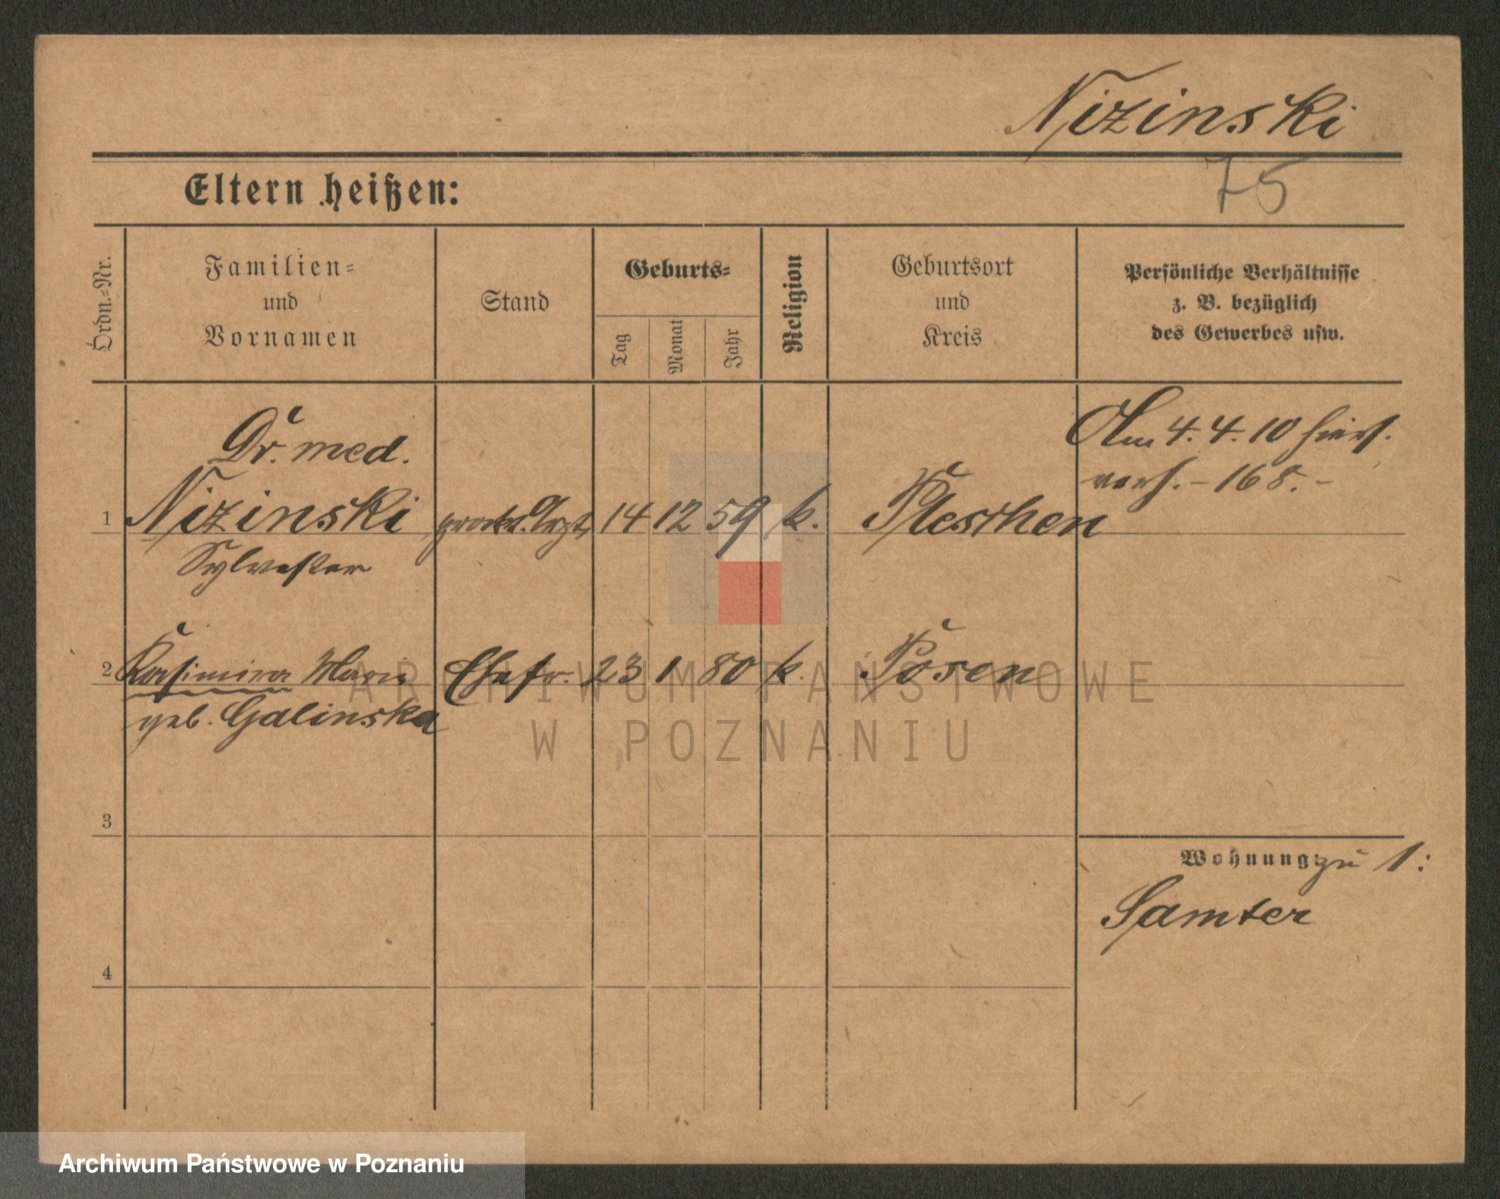 Nizinski
75
Eltern heißen:
Ordn.-Nr.
Familien- und Vornamen
Stand
Geburts-
Tag
Monat
Jahr
Religion
Geburtsort und Kreis
Persönliche Verhältnisse
z. B. bezüglich
des Gewerbes usw.
Am 4. 4. 10 hiers.
verh. - 168. -
Dr. med.
1 Nizinski prakt. Arzt 14 12 59 k. Pleschen
Sylvester
2 Kasimira Maria Ehefr. 23 1 80 k. Posen
geb. Galinska
3
Wohnung zu 1:
Samter
4
ARCHIWUM PAŃSTWOWE
W POZNANIU
Archiwum Państwowe w Poznaniu